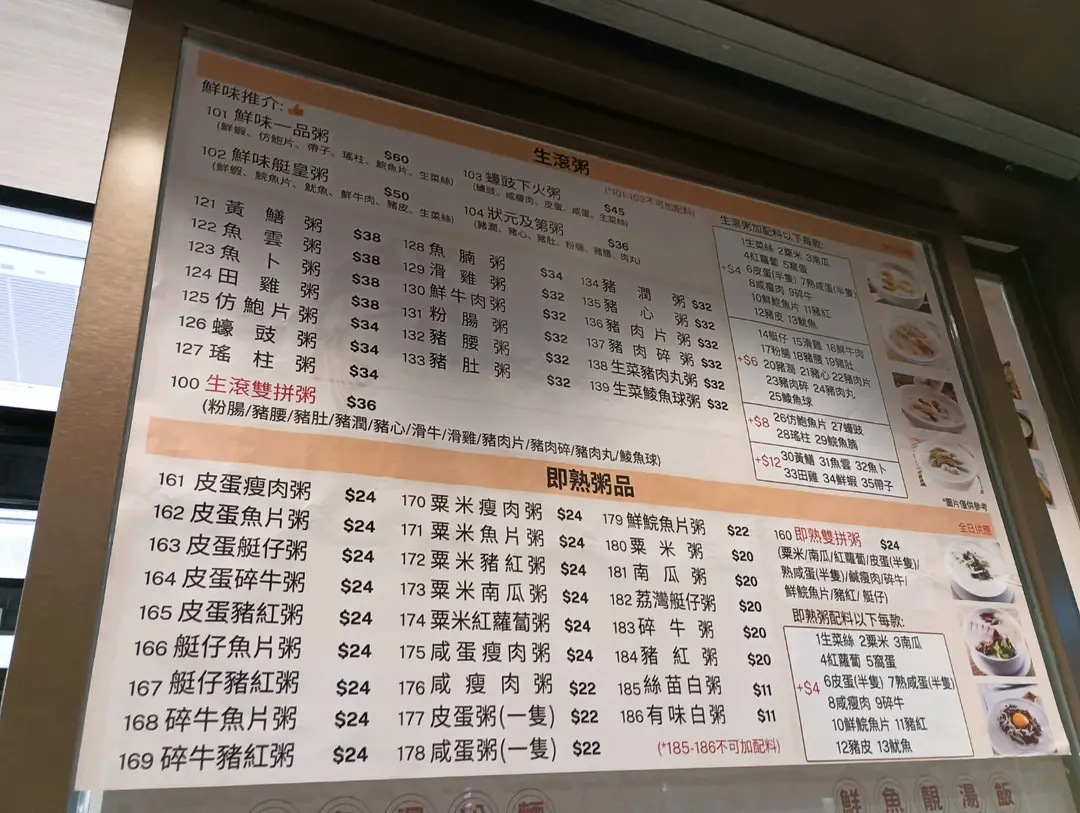 鮮味推介:
101 鮮味一品粥 $60
(鮮蝦、仿鮑片、帶子、瑤柱、鯇魚片、生菜絲)
102 鮮味艇皇粥 $50
(鮮蝦、鯇魚片、魷魚、鮮牛肉、豬皮、生菜絲)
生滾粥
(*101-103不可加配料)
103 蠔豉下火粥 $45
(蠔豉、咸瘦肉、皮蛋、咸蛋、生菜絲)
104 狀元及第粥 $36
(豬潤、豬心、豬肚、粉腸、豬腰、肉丸)
121 黃鱔粥 $38
122 魚雲粥 $38
123 魚卜粥 $38
124 田雞粥 $38
125 仿鮑片粥 $34
126 蠔豉粥 $34
127 瑤柱粥 $34
128 魚腩粥 $34
129 滑雞粥 $32
130 鮮牛肉粥 $32
131 粉腸粥 $32
132 豬腰粥 $32
133 豬肚粥 $32
134 豬潤粥 $32
135 豬心粥 $32
136 豬肉片粥 $32
137 豬肉碎粥 $32
138 生菜豬肉丸粥 $32
139 生菜鯪魚球粥 $32
100 生滾雙拼粥 $36
(粉腸/豬腰/豬肚/豬潤/豬心/滑牛/滑雞/豬肉片/豬肉碎/豬肉丸/鯪魚球)
生滾粥加配料以下每款:
1生菜絲 2粟米 3南瓜
4紅蘿蔔 5窩蛋
+$4 6皮蛋(半隻) 7熟咸蛋(半隻)
8咸瘦肉 9碎牛
10鮮鯇魚片 11豬紅
12豬皮 13魷魚
14艇仔 15滑雞 16鮮牛肉
17粉腸 18豬腰 19豬肚
+$6 20豬潤 21豬心 22豬肉片
23豬肉碎 24豬肉丸
25鯪魚球
+$8 26仿鮑魚片 27蠔豉
28瑤柱 29鯇魚腩
+$12 30黃鱔 31魚雲 32魚卜
33田雞 34鮮蝦 35帶子
*圖片僅供參考
即熟粥品
全日供應
161 皮蛋瘦肉粥 $24
162 皮蛋魚片粥 $24
163 皮蛋艇仔粥 $24
164 皮蛋碎牛粥 $24
165 皮蛋豬紅粥 $24
166 艇仔魚片粥 $24
167 艇仔豬紅粥 $24
168 碎牛魚片粥 $24
169 碎牛豬紅粥 $24
170 粟米瘦肉粥 $24
171 粟米魚片粥 $24
172 粟米豬紅粥 $24
173 粟米南瓜粥 $24
174 粟米紅蘿蔔粥 $24
175 咸蛋瘦肉粥 $24
176 咸瘦肉粥 $22
177 皮蛋粥(一隻) $22
178 咸蛋粥(一隻) $22
179 鮮鯇魚片粥 $22
180 粟米粥 $20
181 南瓜粥 $20
182 荔灣艇仔粥 $20
183 碎牛粥 $20
184 豬紅粥 $20
185 絲苗白粥 $11
186 有味白粥 $11
(*185-186不可加配料)
160 即熟雙拼粥 $24
(粟米/南瓜/紅蘿蔔/皮蛋(半隻)/
熟咸蛋(半隻)/鹹瘦肉/碎牛/
鮮鯇魚片/豬紅/ 艇仔)
即熟粥配料以下每款:
1生菜絲 2粟米 3南瓜
4紅蘿蔔 5窩蛋
+$4 6皮蛋(半隻) 7熟咸蛋(半隻)
8咸瘦肉 9碎牛
10鮮鯇魚片 11豬紅
12豬皮 13魷魚
鮮魚靚湯飯